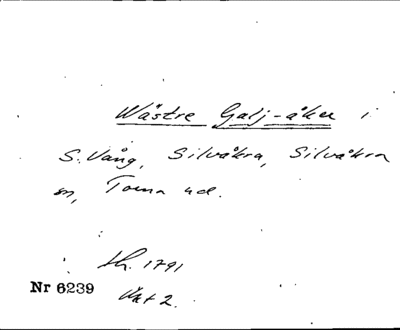 Wästre Galj-åker i
S. Vång, Silvåkra, Silvåkra
sn, Torna hd.
Sh. 1791
Nr 6239
Akt 2.